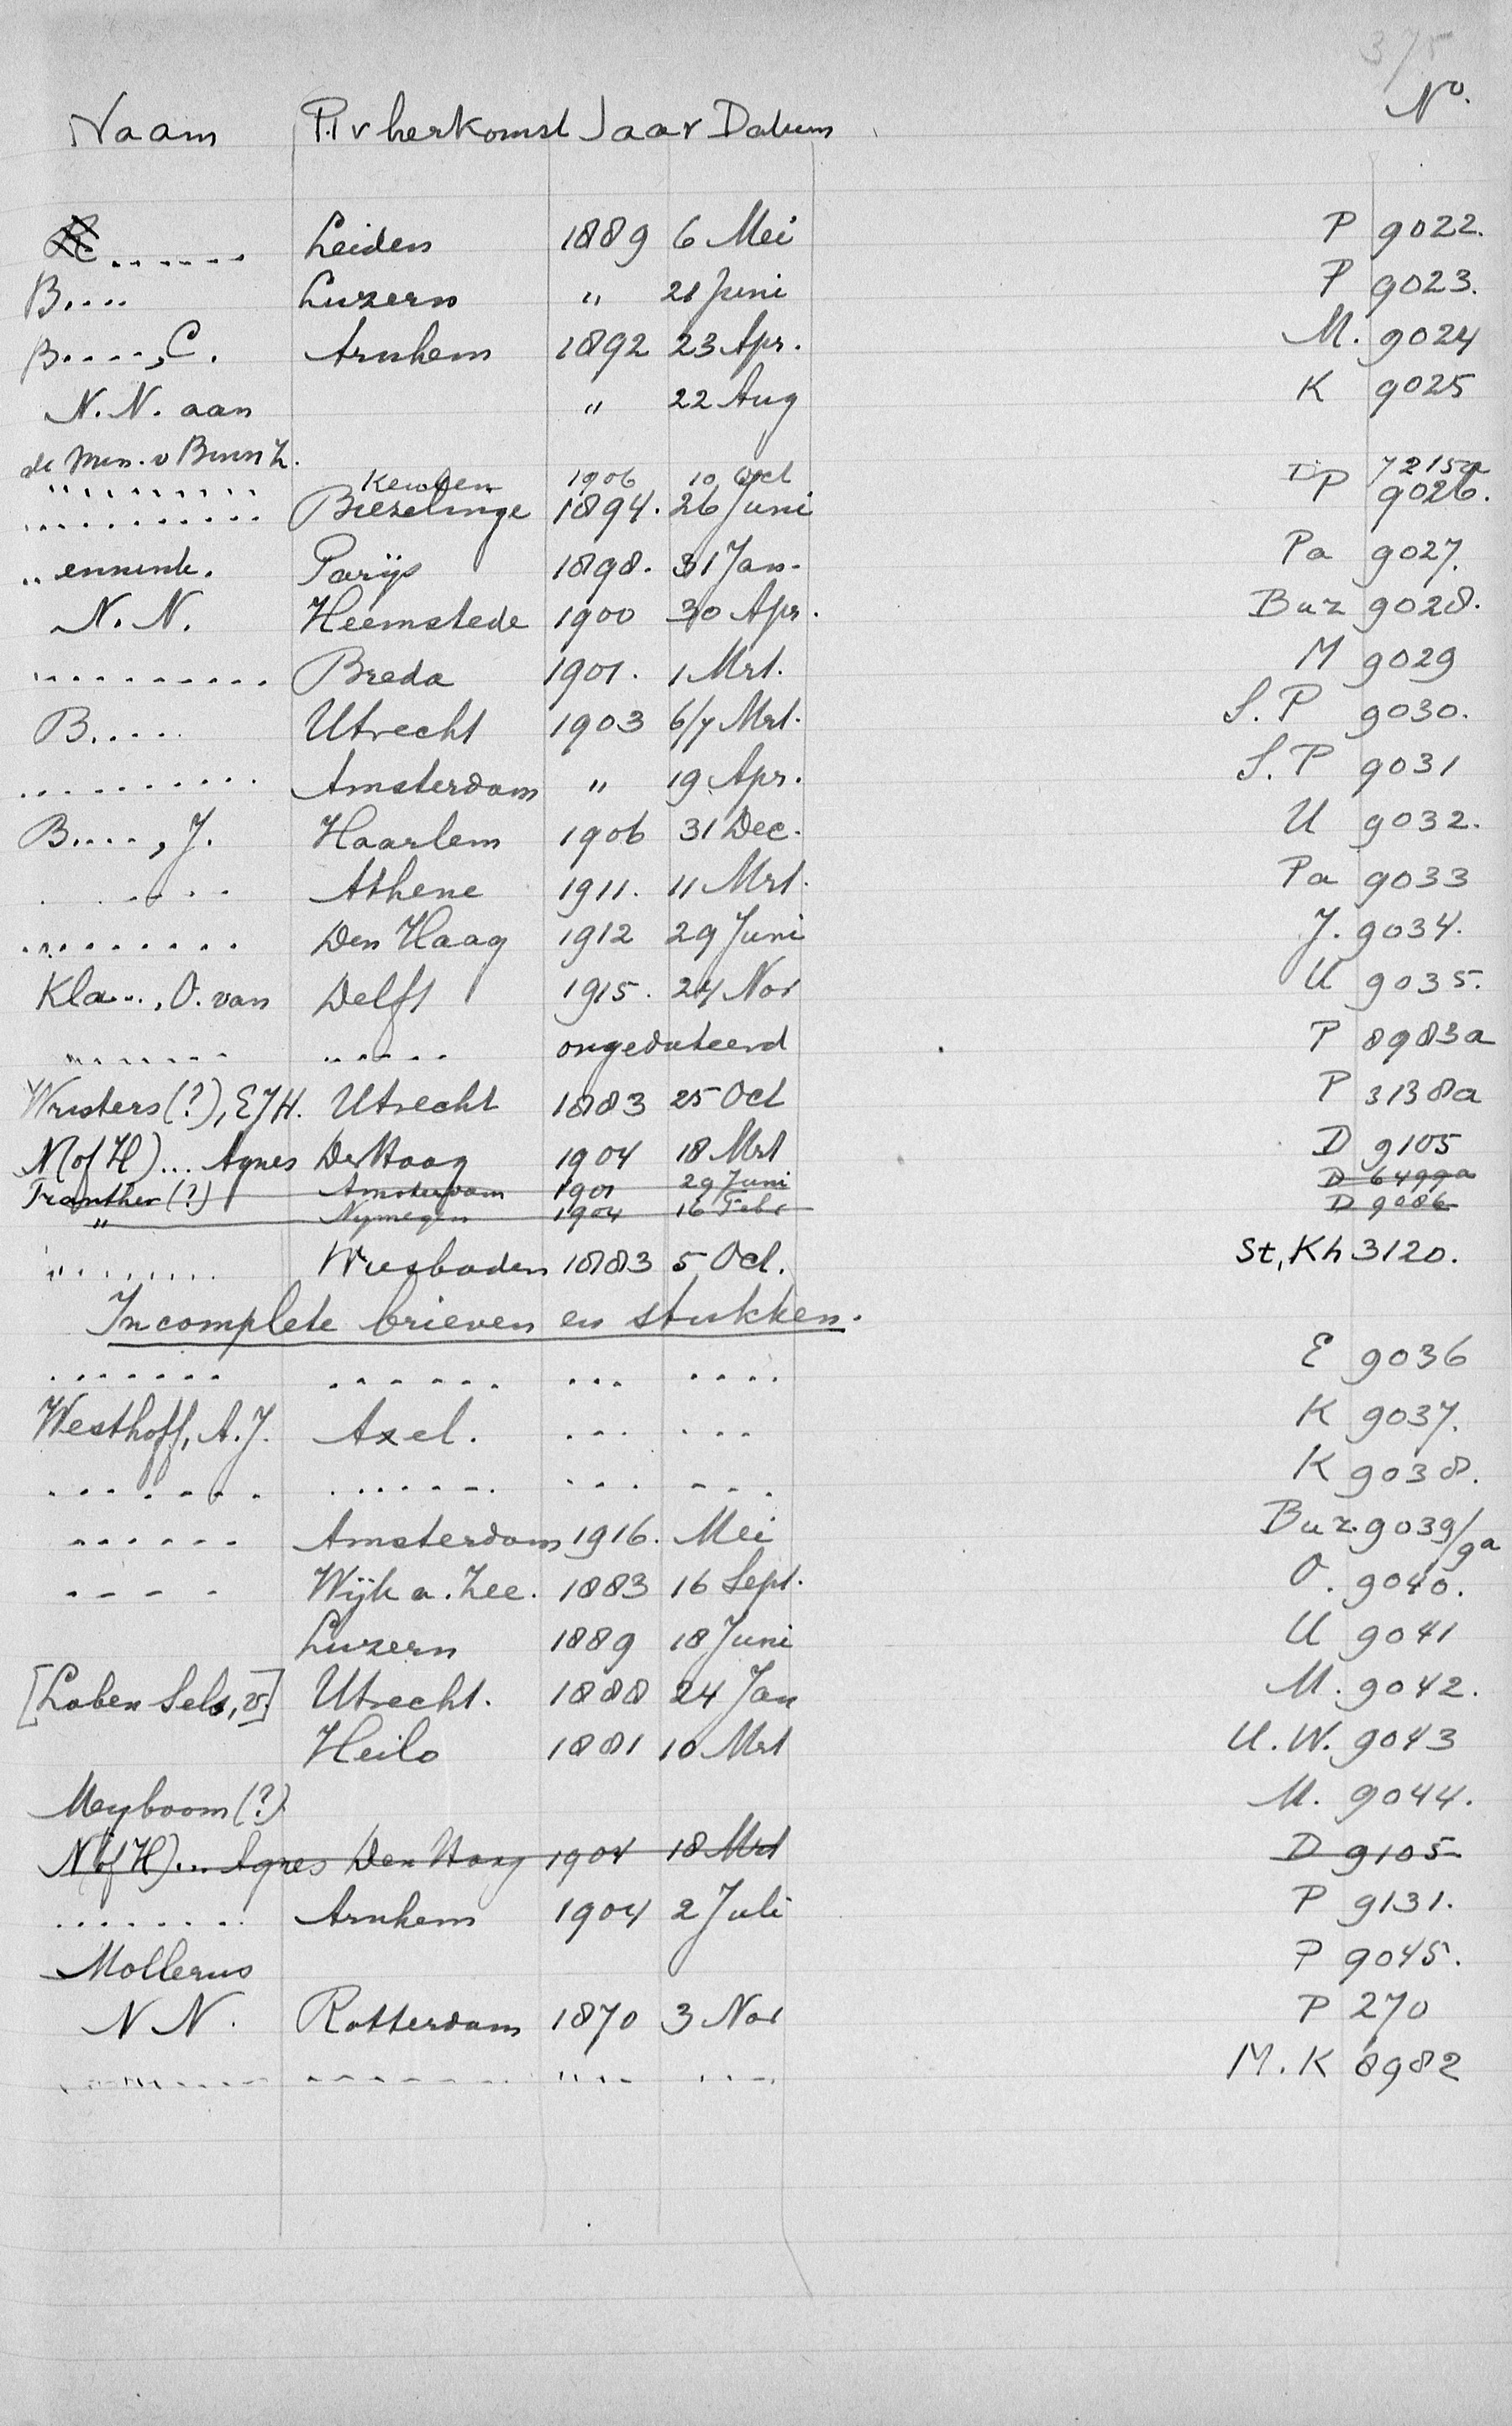 375
Naam Pl v herkomst Jaar Datum No.
...... Leiden 1889 6 Mei P 9022.
B.... Luzern " 21 Juni P 9023.
B....., C. Arnhem 1892 23 Apr. M. 9024
N.N. aan " 22 Aug K 9025
de Min. v Binn Z.
.......... Keulen 1906 10 Oct D 7215a
.......... Biezelinge 1894. 26 Juni P 9026.
.. ennink. Parijs 1898. 31 Jan. Pa 9027.
N.N. Heemstede 1900 30 Apr. Buz 9028.
.......... Breda 1901. 1 Mrt. M 9029
B..... Utrecht 1903 6/7 Mrt. S.P 9030.
.......... Amsterdam " 19 Apr. S.P 9031
B...., J. Haarlem 1906 31 Dec. U 9032.
..... Athene 1911. 11 Mrt. Pa 9033
......... Den Haag 1912 29 Juni J. 9034.
Kla..., O. van Delft 1915. 24 Nov U 9035.
....... ..... ongedateerd P 8983a
Wusters (?), E J H. Utrecht 1883 25 Oct P 3138a
N (of H) ... Agnes De Haag 1904 18 Mrt D 9105
Tranther (?) Amsterdam 1901 29 Juni D 6499a
" Nymegen 1904 16 Febr D 9086
........ Wiesbaden 1883 5 Oct. St, Kh 3120.
Incomplete brieven en stukken.
....... ...... ... .... E 9036
Westhoff, A.J. Axel. ... ... K 9037.
....... ...... ... ... K 9038.
...... Amsterdam 1916. Mei Buz. 9039/9a
.... Wijk a. Zee. 1883 16 Sept. O. 9040.
Luzern 1889 18 Juni U 9041
[Loben Sels, v.] Utrecht. 1888 24 Jan M. 9042.
Heilo 1881 10 Mrt U.W. 9043
Meyboom (?) M. 9044.
N (of H) ... Agnes Den Haag 1904 18 Mrt D 9105
........ Arnhem 1904 2 Juli P 9131.
Mollerus P 9045.
N N. Rotterdam 1870 3 Nov P 270
.......... ........ .... .... M. K 8982